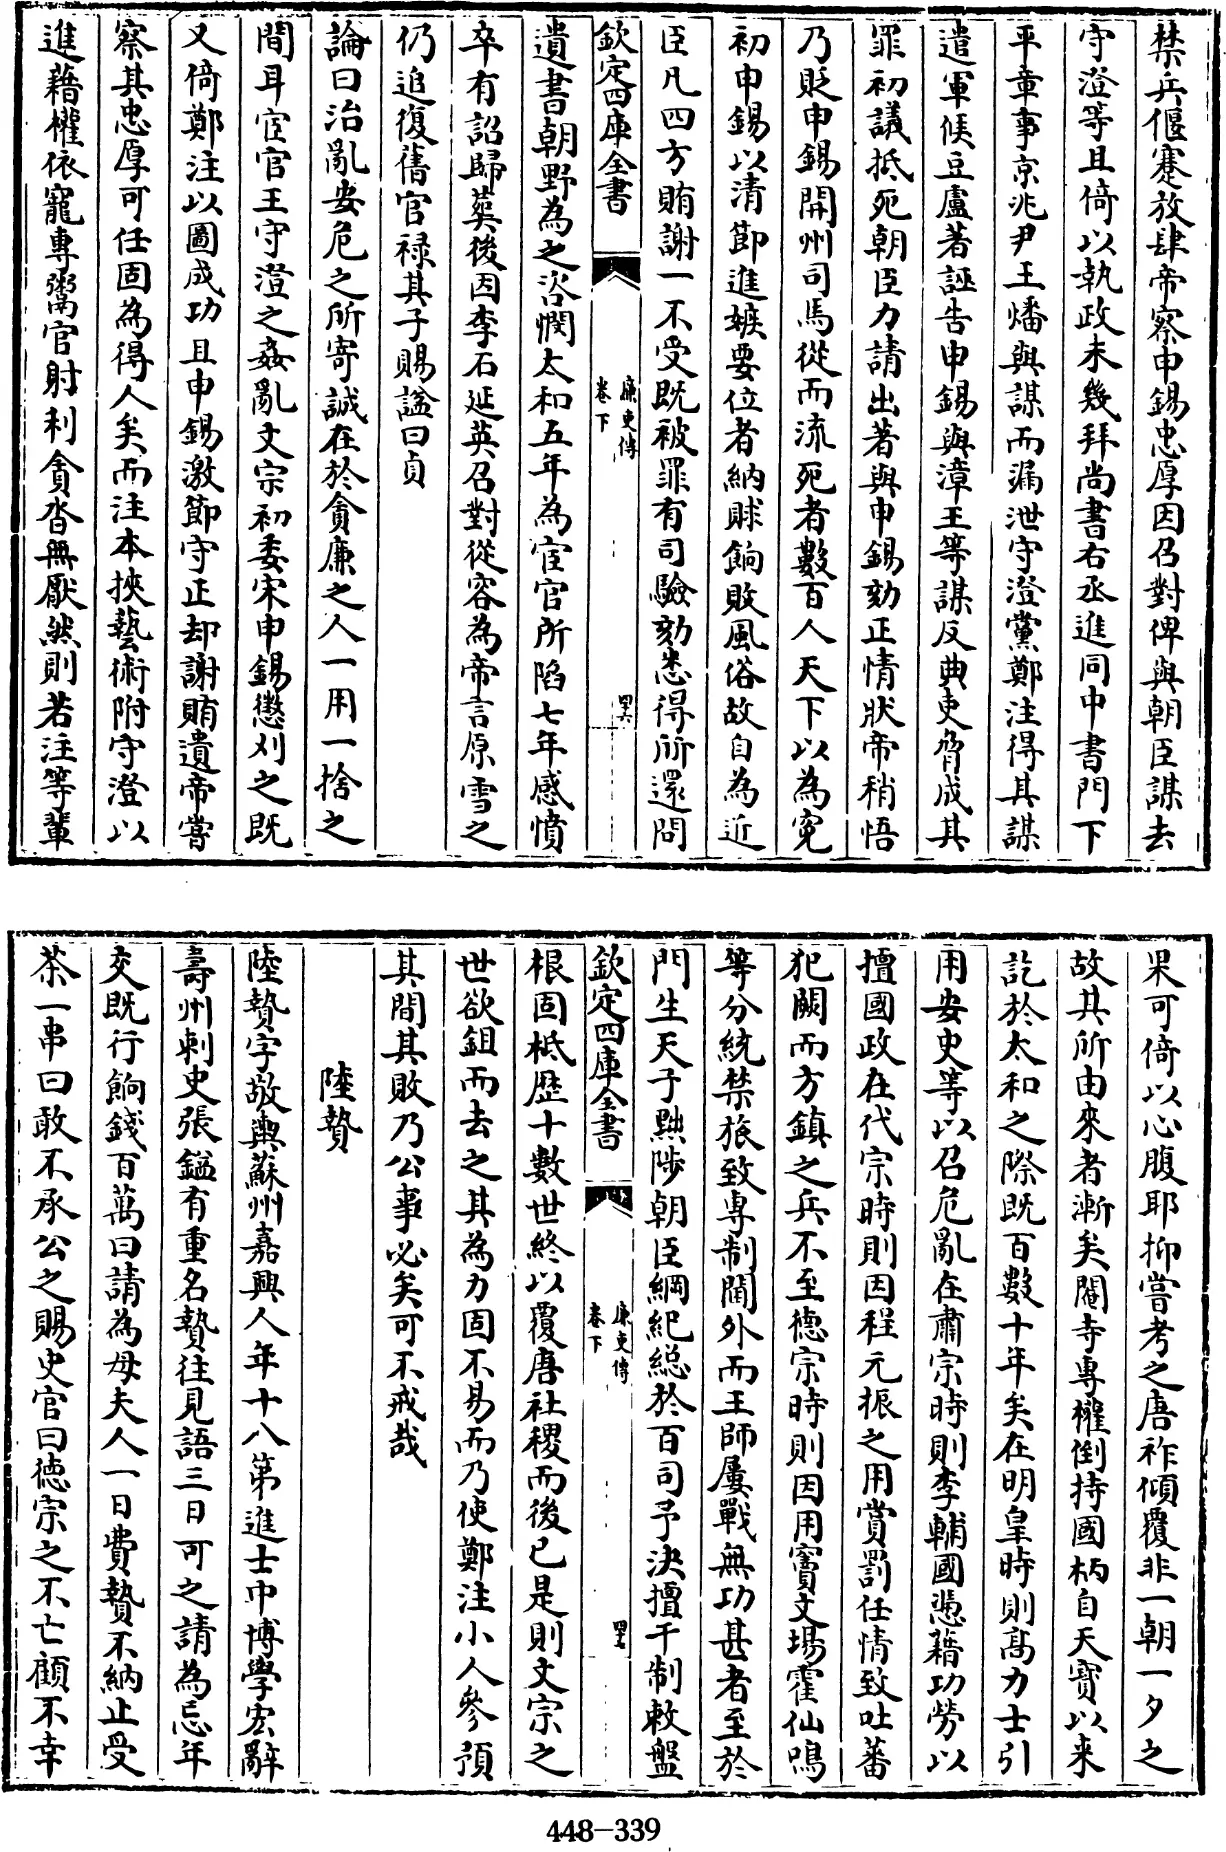 禁兵偃蹇放肆帝察申錫忠厚因召對俾與朝臣謀去
守澄等且倚以執政未幾拜尚書右丞進同中書門下
平章事京兆尹王璠與謀而漏泄守澄黨鄭注得其謀
遣軍候豆盧著誣告申錫與漳王等謀反典吏脅成其
罪初議抵死朝臣力請出著與申錫劾正情狀帝稍悟
乃貶申錫開州司馬從而流死者數百人天下以為寃
初申錫以清節進嫉要位者納賕餉敗風俗故自為近
臣凡四方賄謝一不受既被罪有司驗劾悉得所還問
欽定四庫全書
廉吏傳
卷下
遺書朝野為之咨憫太和五年為宦官所陷七年感憤
卒有詔歸葬後因李石延英召對從容為帝言原雪之
仍追復舊官禄其子賜諡曰貞
論曰治亂安危之所寄誠在於貪廉之人一用一捨之
間耳宦官王守澄之姦亂文宗初委宋申錫懲刈之既
又倚鄭注以圖成功且申錫激節守正却謝賄遺帝嘗
察其忠厚可任固為得人矣而注本挾藝術附守澄以
進藉權依寵專鬻官射利貪沓無厭然則若注等輩
果可倚以心腹耶抑嘗考之唐祚傾覆非一朝一夕之
故其所由來者漸矣閹寺專權倒持國柄自天寶以来
訖於太和之際既百數十年矣在明皇時則高力士引
用安史等以召危亂在肅宗時則李輔國憑藉功勞以
擅國政在代宗時則因程元振之用賞罰任情致吐蕃
犯闕而方鎮之兵不至德宗時則因用竇文場霍仙鳴
等分統禁旅致專制閫外而王師屢戰無功甚者至於
門生天子黜陟朝臣綱紀總於百司予決擅于制敕盤
欽定四庫全書
廉吏傳
卷下
根固柢歴十數世終以覆唐社稷而後已是則文宗之
世欲鉏而去之其為力固不易而乃使鄭注小人參預
其間其敗乃公事必矣可不戒哉
陸贄
陸贄字敬輿蘇州嘉興人年十八第進士中博學宏辭
壽州刺史張鎰有重名贄往見語三日可之請為忘年
交既行餉錢百萬曰請為母夫人一日費贄不納止受
茶一串曰敢不承公之賜史官曰徳宗之不亡顧不幸
448-339